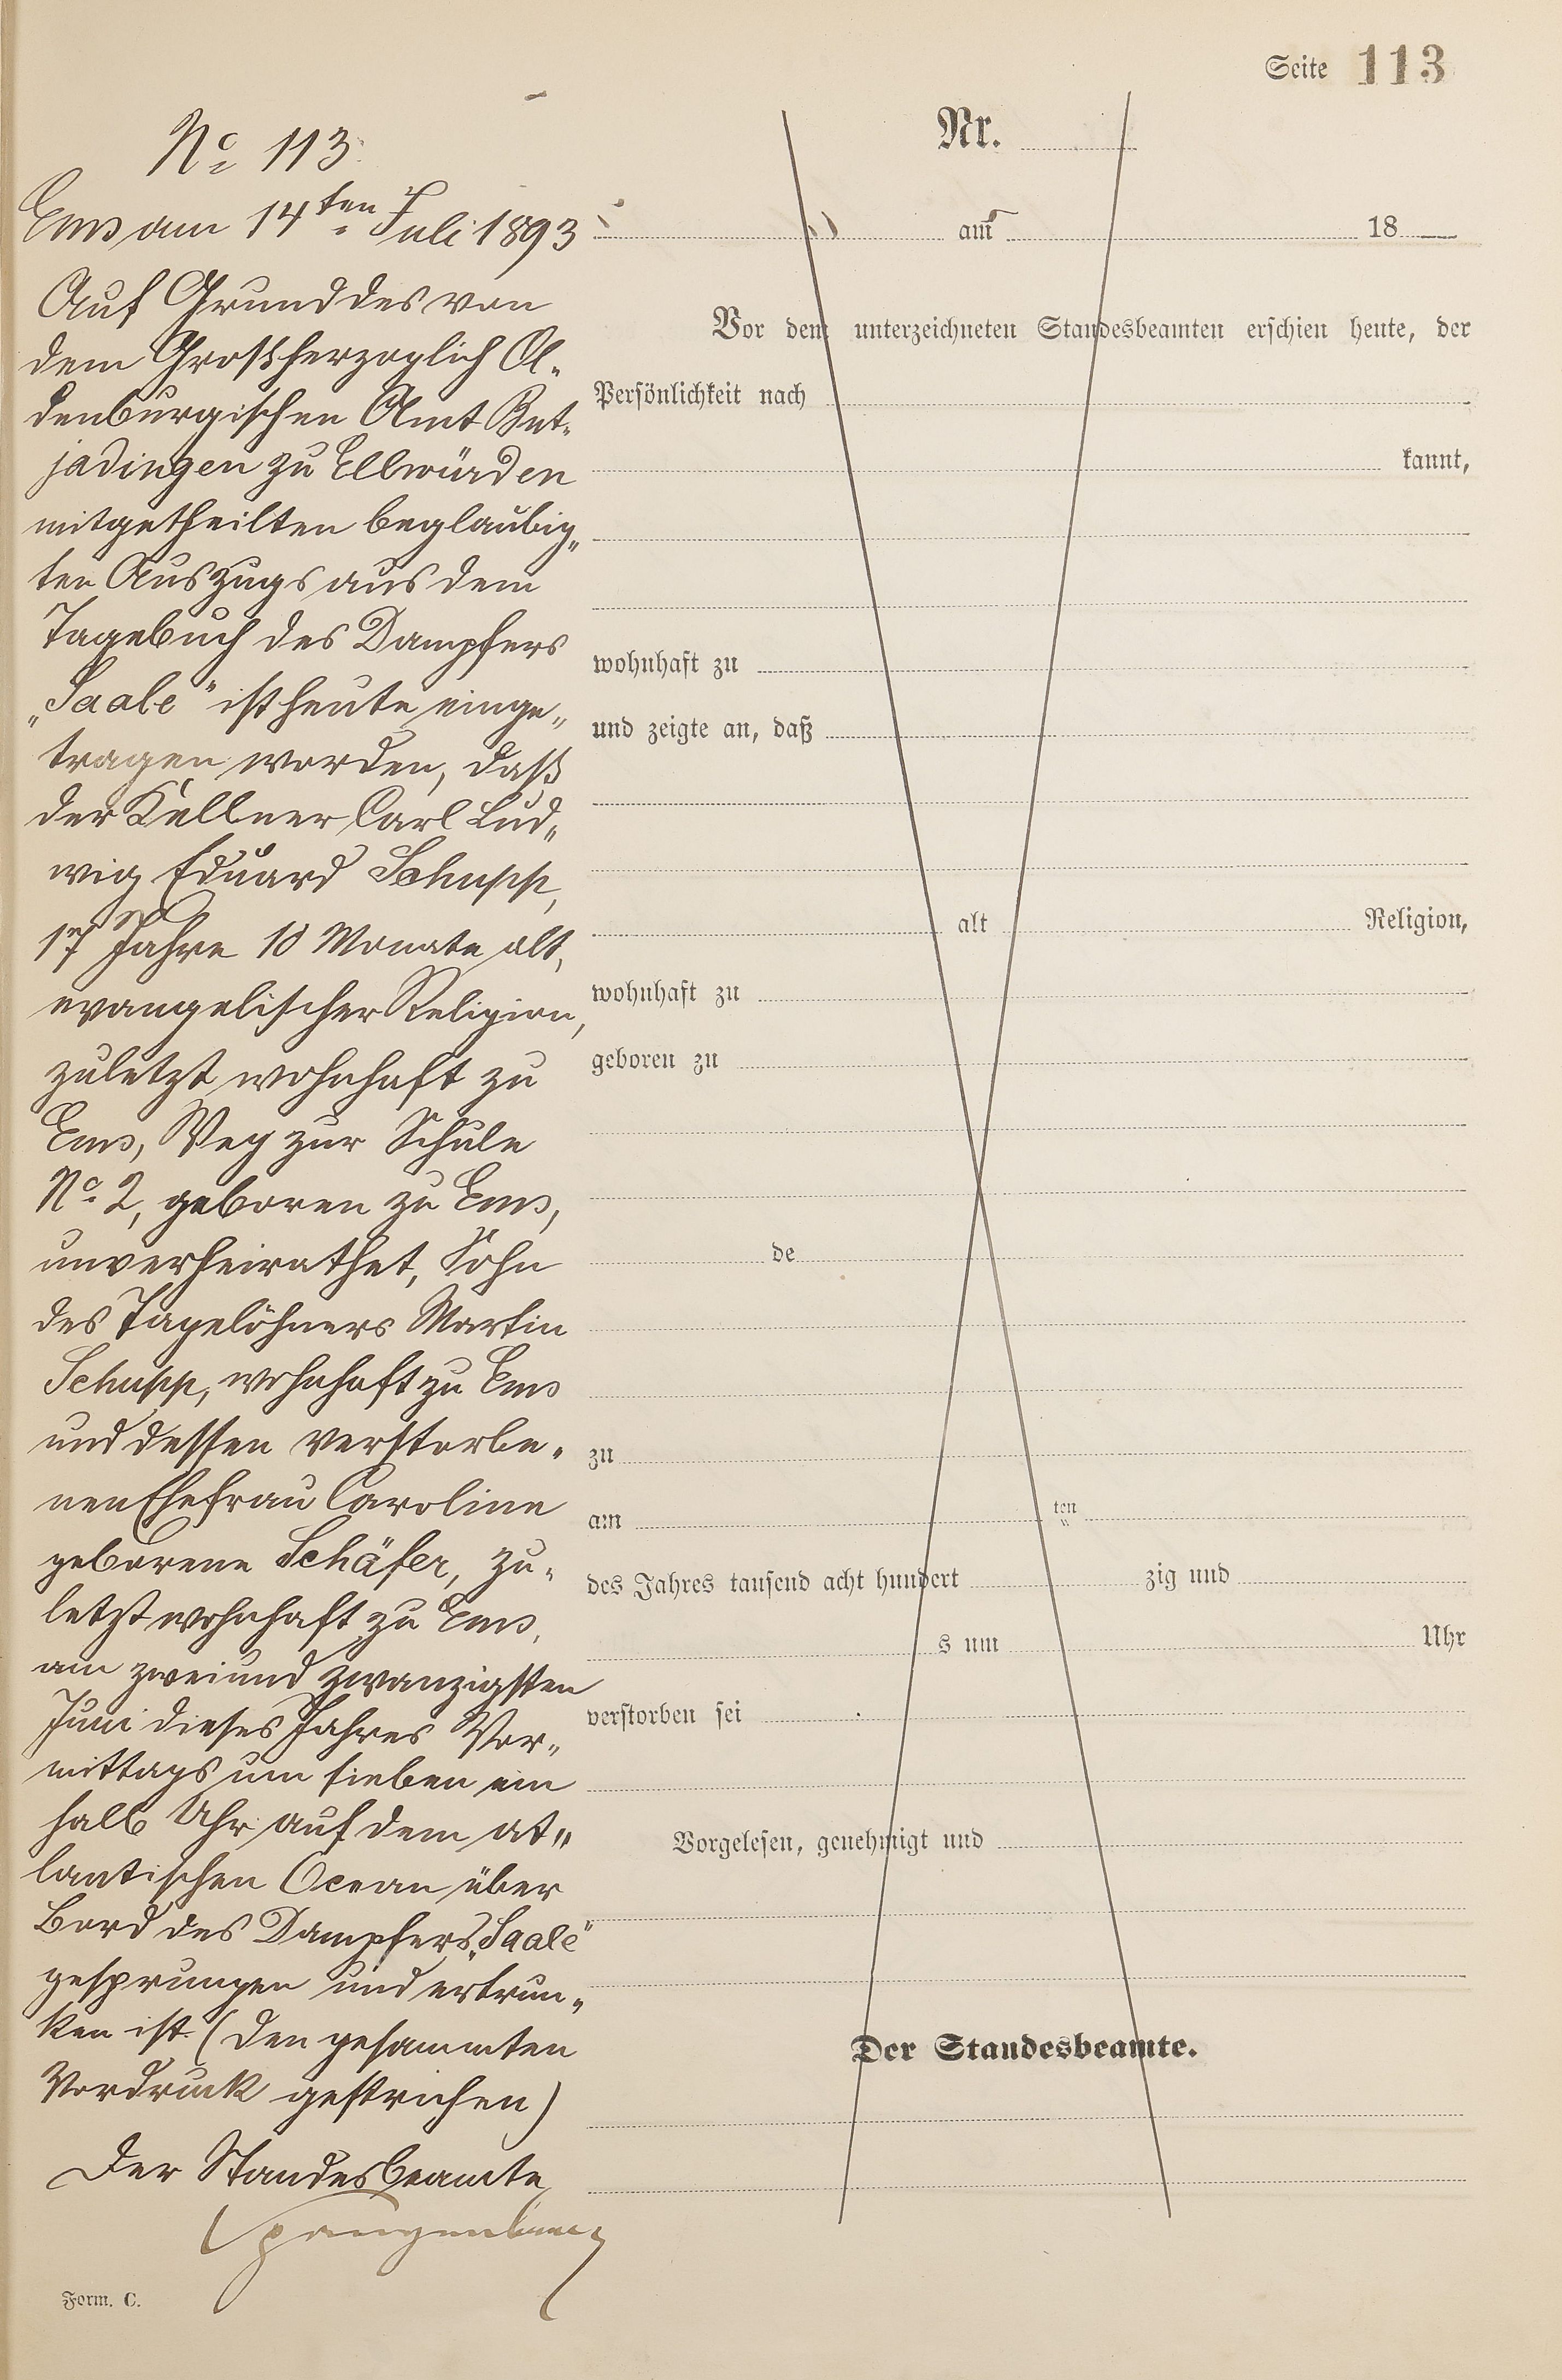 Seite 113
No 113.
Ems am 14ten Juli 1893
Auf Grund des von
dem Großherzoglich Ol-
denburgischen Amt But-
jadingen zu Ellwürden
mitgetheilten beglaubig-
ten Auszugs aus dem
Tagebuch des Dampfers
„Saale" ist heute einge-
tragen worden, daß
der Kellner Carl Lud-
wig Eduard Schupp,
17 Jahre 10 Monate alt,
evangelischer Religion,
zuletzt wohnhaft zu
Ems, Weg zur Schule
No 2, geboren zu Ems,
unverheirathet, Sohn
des Tagelöhners Martin
Schupp, wohnhaft zu Ems
und dessen verstorbe-
nen Ehefrau Caroline
geborene Schäfer, zu-
letzt wohnhaft zu Ems,
am zweiundzwanzigsten
Juni dieses Jahres Vor-
mittags um sieben ein
halb Uhr auf dem at-
lantischen Ocean über
Bord des Dampfers „Saale"
gesprungen und ertrun-
ken ist. (Den gesammten
Vordruck gestrichen)
Der Standesbeamte
Form. C.
Nr.
am 18
Vor dem unterzeichneten Standesbeamten erschien heute, der
Persönlichkeit nach
kannt,
wohnhaft zu
und zeigte an, daß
alt Religion,
wohnhaft zu
geboren zu
de
zu
am ten
des Jahres tausend acht hundert zig und
s um Uhr
verstorben sei
Vorgelesen, genehmigt und
Der Standesbeamte.